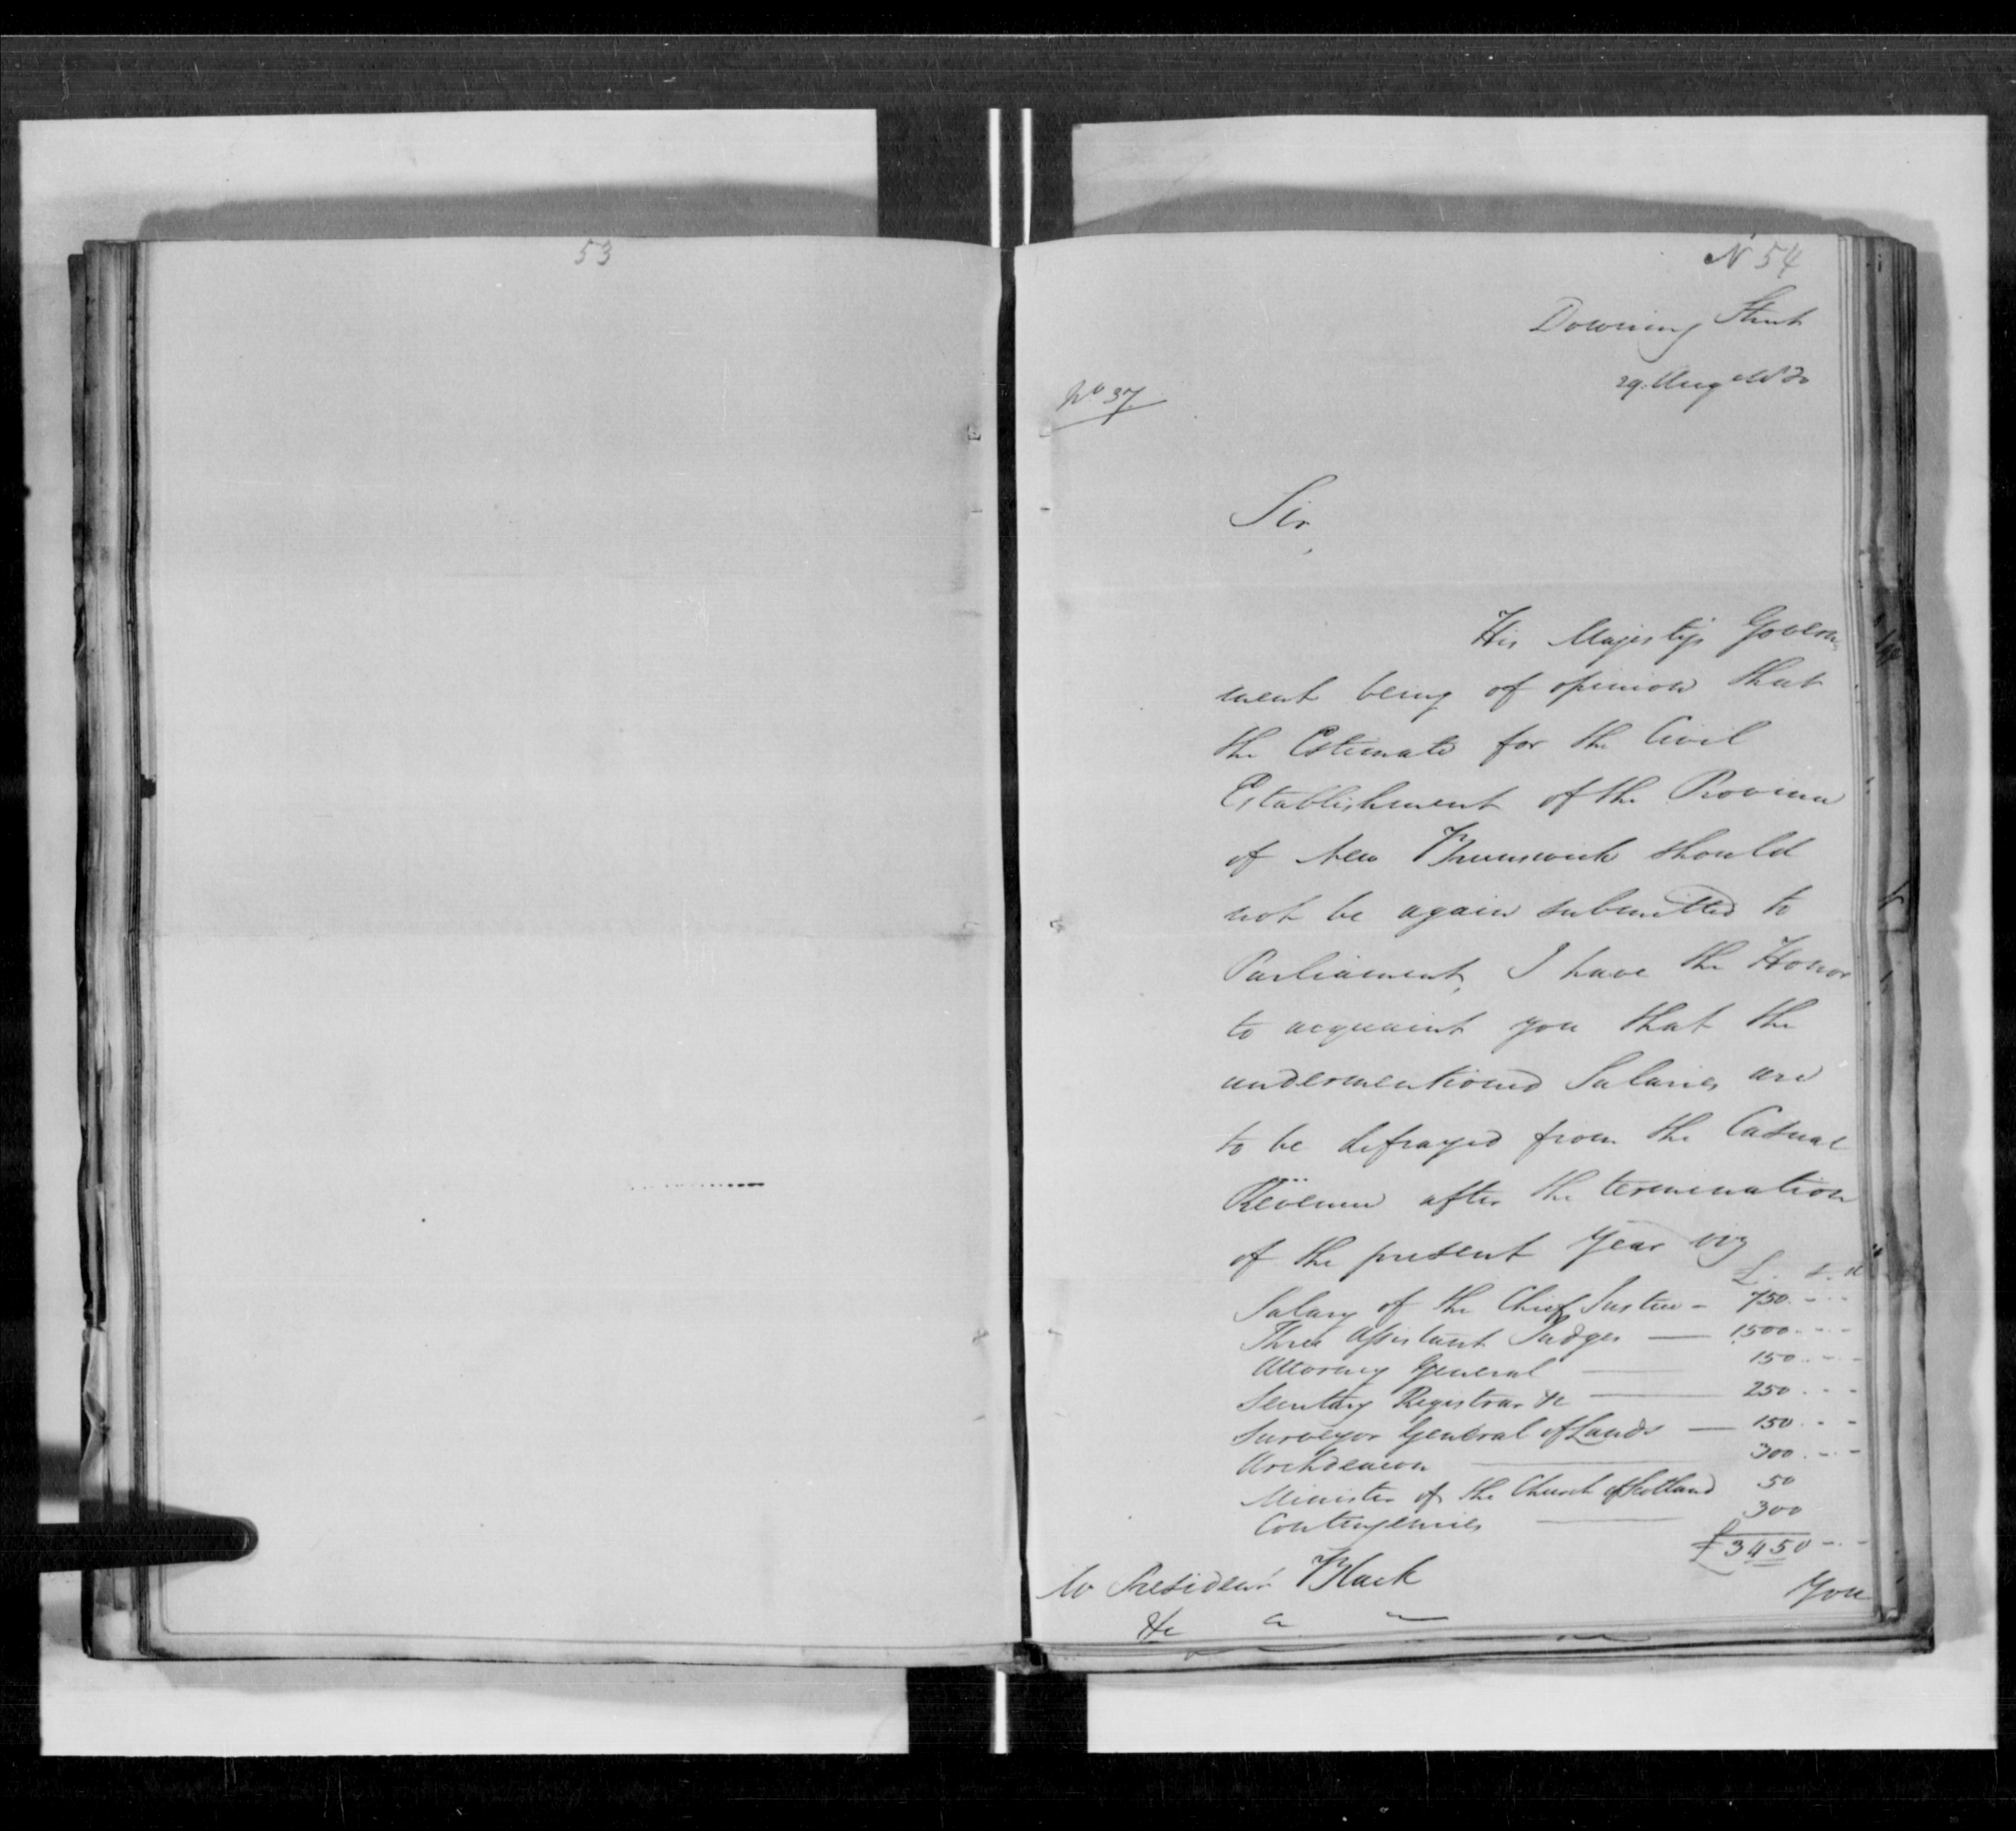 53
N 54
Downing Street
29. Aug
No 37
Sir,
His Majesty's Govern
ment being of opinion that
the Estimate for the Civil
Establishment of the Province
of New Brunswick should
not be again submitted to
Parliament, I have the Honor
to acquaint you that the
undermentioned Salaries are
to be defrayed from the Casual
Revenue after the termination
of the present Year viz
£. s. d
Salary of the Chief Justice - 750. - -
Three Assistant Judges — 1500. - -
Attorney General — 150. - -
Secretary Registrar &c — 250. - -
Surveyor General of Lands — 150. - -
Archdeacon — 300. - -
Minister of the Church of Scotland 50
Contingencies — 300
£3450 - -
Mr President Black
&c
You